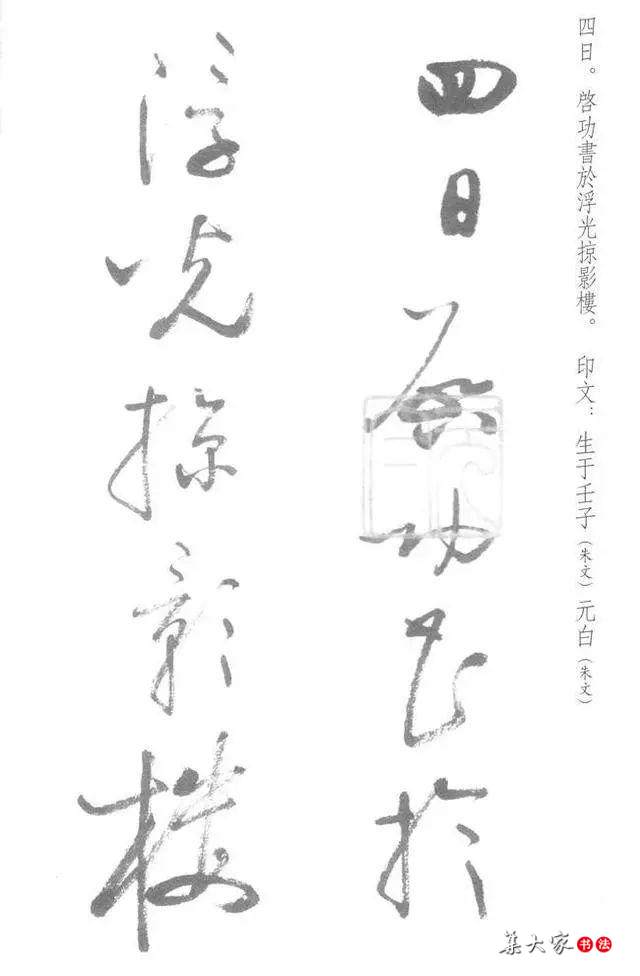 四日。啓功書於浮光掠影樓。 印文：生于壬子（朱文）元白（朱文）
四日啓功書於
浮光掠影樓
集大家书法